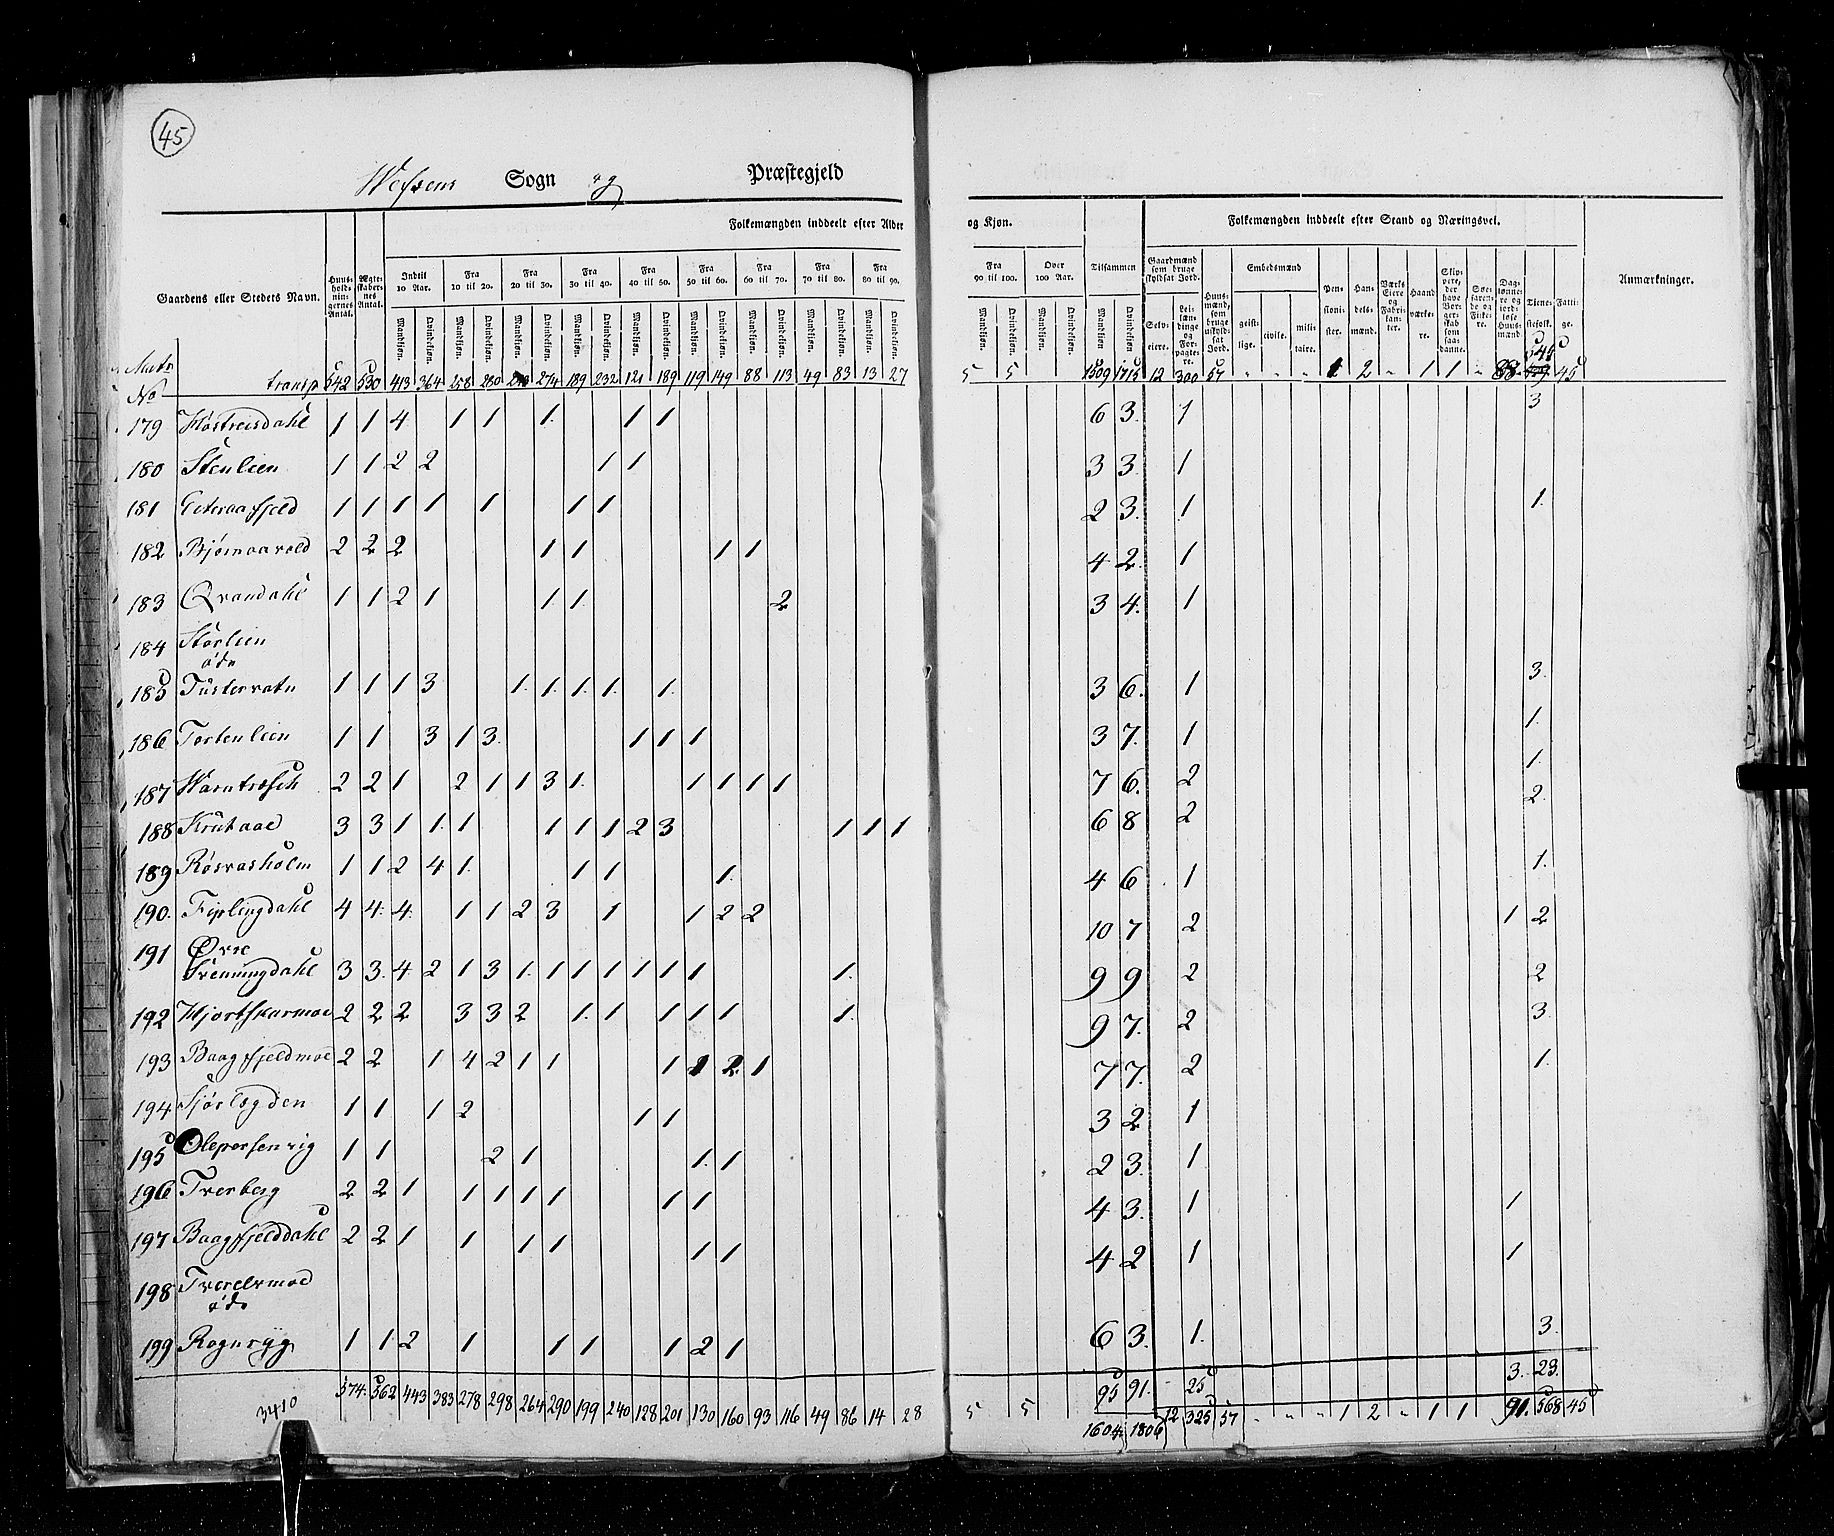 45
Wefsens Sogn og Præstegjeld
Folkemængden inddeelt efter Alder og Kjøn.
Folkemængden inddeelt efter Stand og Næringsvei.
Gaardens eller Stedets Navn.
Huusholdningernes Antal.
Ægteskabernes Antal.
Indtil 10 Aar. Fra 10 til 20. Fra 20 til 30. Fra 30 til 40. Fra 40 til 50. Fra 50 til 60. Fra 60 til 70. Fra 70 til 80. Fra 80 til 90. Fra 90 til 100. Over 100 Aar. Tilsammen
Gaardmænd som bruge skyldsat Jord. Huusmænd, som bruge uskyldsat Jord. Embedsmænd Pensionister. Handelsmænd. Værks Eiere og Fabrikanter. Haandværkere. Skippere, der have Borgerskab som saadanne. Søefarende og Fiskere. Daglønnere og jordløse Huusmænd Tjenestefolk. Fattige. Anmærkninger.
Mandkjøn. Qvindekjøn. Mandkjøn. Qvindekjøn. Mandkjøn. Qvindekjøn. Mandkjøn. Qvindekjøn. Mandkjøn. Qvindekjøn. Mandkjøn. Qvindekjøn. Mandkjøn. Qvindekjøn. Mandkjøn. Qvindekjøn. Mandkjøn. Qvindekjøn. Mandkjøn. Qvindekjøn. Mandkjøn. Qvindekjøn. Mandkjøn. Qvindekjøn. Selveiere. Leilændinge og Forpagtere. geistlige. civile. militaire.
Matr No transp 542 530 413 364 258 280 274 189 232 121 189 119 149 88 113 49 83 13 27 5 5 1509 1715 12 300 57 " " " 1 2 " 1 1 " 88 545 45
179 1 1 4 1 1 1 1 1 6 3. 1 3
180 Stenlien 1 1 2 2 1 1 3 3. 1
181 1 1 1 1 1 1 1 2 3. 1 1.
182 Bjørnaavold 2 2 2 1 1 1 1 4 2. 1
183 Qvandahl 1 1 2 1 1 1 2 3 4. 1
184 Storlien
øde
185 Tustervatn 1 1 1 3 1. 1. 1. 1. 1. 3 6. 1 3.
186 Tortenlien 1 1 3 1 3. 1 1 1 3 7. 1 1.
187 2 2 1 2 1 1 3 1. 1 1 1 1 7 6. 2 1.
188 Krutaae 3 3 1 1. 1 1 1 1 2 3 1 1 1 6 8 2 2.
189 Røsvasholm 1 1 2 4 1. 1 1 1. 4 6 1 1.
190. Fiplingdahl 4 4. 4. 1 1 2 3 1 1 2 2 10 7 2 1 2
191 Øvre
Svenningdahl 3 3. 4 2 1 3 1. 1 1 1 1 1 1 1. 9 9 2 2
192 Hjortskarmoe 2 2 2 3 3 2 1. 1 1 1 1 1. 9 7. 2 3
193 Baagfjeldmoe 2 2 1 4 2 1 1 1 2 1 7 7. 2 1.
194 1 1 1 2 1 1 3 2 1
195 Olepersenrig 1 1 2 1 1. 1 2 3. 1
196 Tverberg 2 2 1 1 1 1 1 1 1 4 3. 1 1
197 Baagfjelddahl 2 2 1 1 1 1 1 1 4 2 1 1
198 Tverelvmoe
øde
199 Rognryg 1 1. 2 1 1 1 1 2 1 6 3. 1. 3.
95 91. 25 3. 23.
3410 574. 562 443 383 278 298 264 290 199 240 128 201 130 160 93 116 49 86 14 28 5 5 1604. 1806 12 325 57 " " " 1 2 " 1 1 91. 568 45